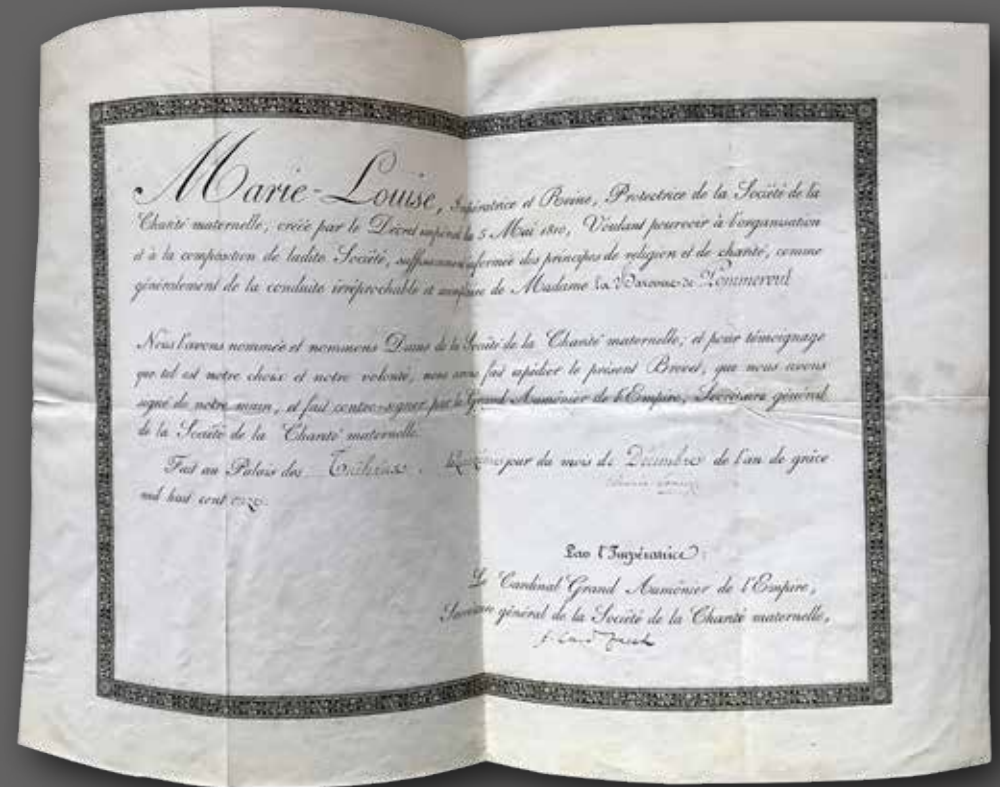 Marie-Louise, Impératrice et Reine, Protectrice de la Société de la
Charité maternelle, créée par le Décret impérial du 5 Mai 1810, Voulant pourvoir à l'organisation
et à la composition de ladite Société, suffisamment informée des principes de religion et de charité, comme
généralement de la conduite irréprochable et de Madame la Baronne de Pommereul
Nous l'avons nommée et nommons Dame de la Société de la Charité maternelle; et pour témoignage
que tel est notre choix et notre volonté, nous avons fait expédier le présent Brevet, que nous avons
signé de notre main, et fait contre-signer par le Grand Aumônier de l'Empire, Secrétaire général
de la Société de la Charité maternelle.
Fait au Palais des Tuileries, jour du mois de Décembre de l'an de grâce
mil huit cent onze.
Par l'Impératrice:
Le Cardinal Grand Aumônier de l'Empire,
Secrétaire général de la Société de la Charité maternelle,
J. Card. Fesch